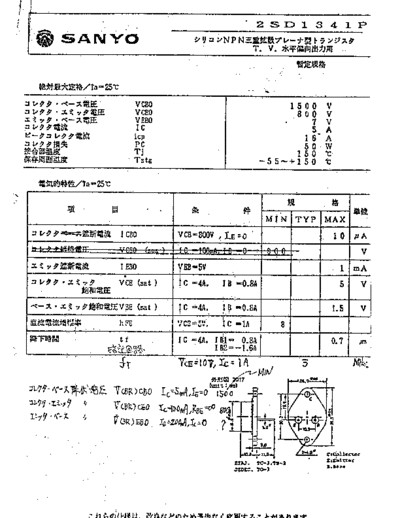 2SD1341P
SANYO
シリコンNPN三重拡散プレーナ型トランジスタ
T. V. 水平偏向出力用
暫定規格
絶対最大定格/Ta=25℃
コレクタ・ベース電圧 VCBO 1500 V
コレクタ・エミッタ電圧 VCEO 800 V
エミッタ・ベース電圧 VEBO 7 V
コレクタ電流 IC 5 A
ピークコレクタ電流 icp 16 A
コレクタ損失 PC 50 W
接合部温度 Tj 150 ℃
保存周囲温度 Tstg -55~+150 ℃
電気的特性/Ta=25℃
項 目 条 件 規 格 単位
MIN TYP MAX
コレクタ・ベース遮断電流 ICBO VCB=800V, IE=0 10 μA
エミッタ遮断電流 IEBO VEB=5V 1 mA
コレクタ・エミッタ飽和電圧 VCE (sat) IC=4A, IB=0.8A 5 V
ベース・エミッタ飽和電圧 VBE (sat) IC=4A, IB=0.8A 1.5 V
直流電流増幅率 hFE VCE=5V, IC=1A 8
降下時間 tf IC=4A, IB1=0.8A IB2=-1.6A 0.7 μs
fT VCE=10V, IC=1A 3 MHz
MIN
コレクタ・ベース降伏電圧 V(BR)CBO IC=5mA, IE=0 1500
コレクタ・エミッタ 〃 V(BR)CEO IC=100mA, RBE=∞ 800
エミッタ・ベース 〃 V(BR)EBO IE=200mA, IC=0 7
外形図 2017
EIAJ. TC-3, TB-3
JEDEC. TO-3
C:Collector
E:Emitter
B:Base
これらの仕様は、改良などのため予告なく変更することがあります。